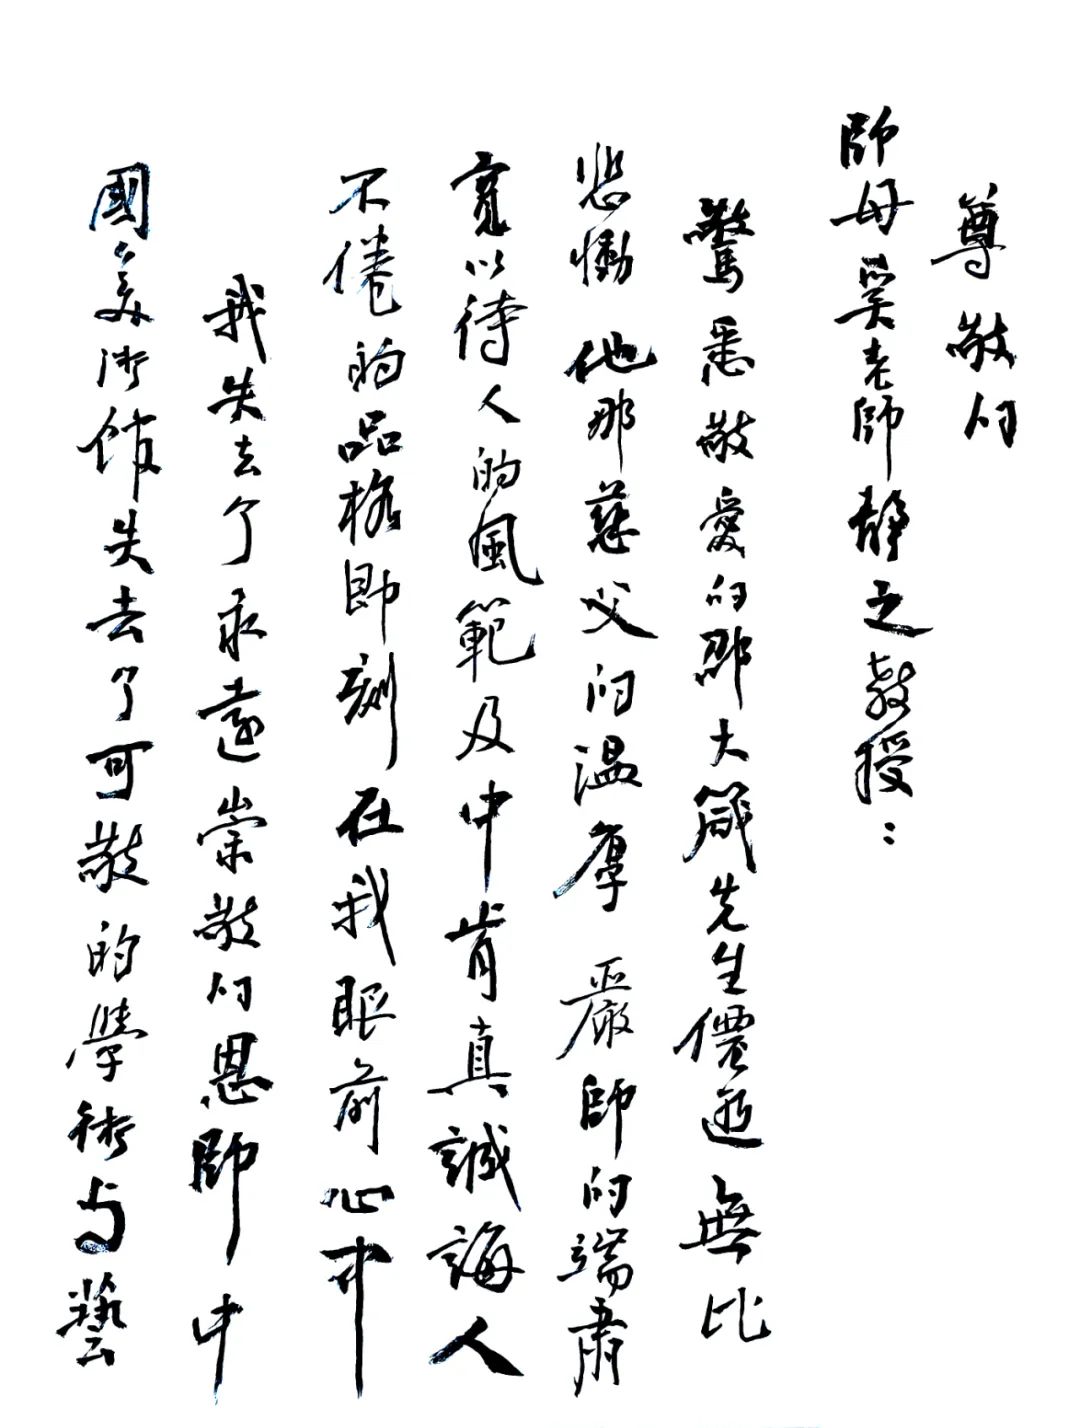 尊敬的
師母奚老師靜之教授：
驚悉敬愛的邵大箴先生僊逝無比
悲慟他那慈父的温厚嚴師的端肅
寬以待人的風範及中肯真誠誨人
不倦的品格即刻在我眼前心中
我失去了永遠崇敬的恩師中
國美術館失去了可敬的學術与藝